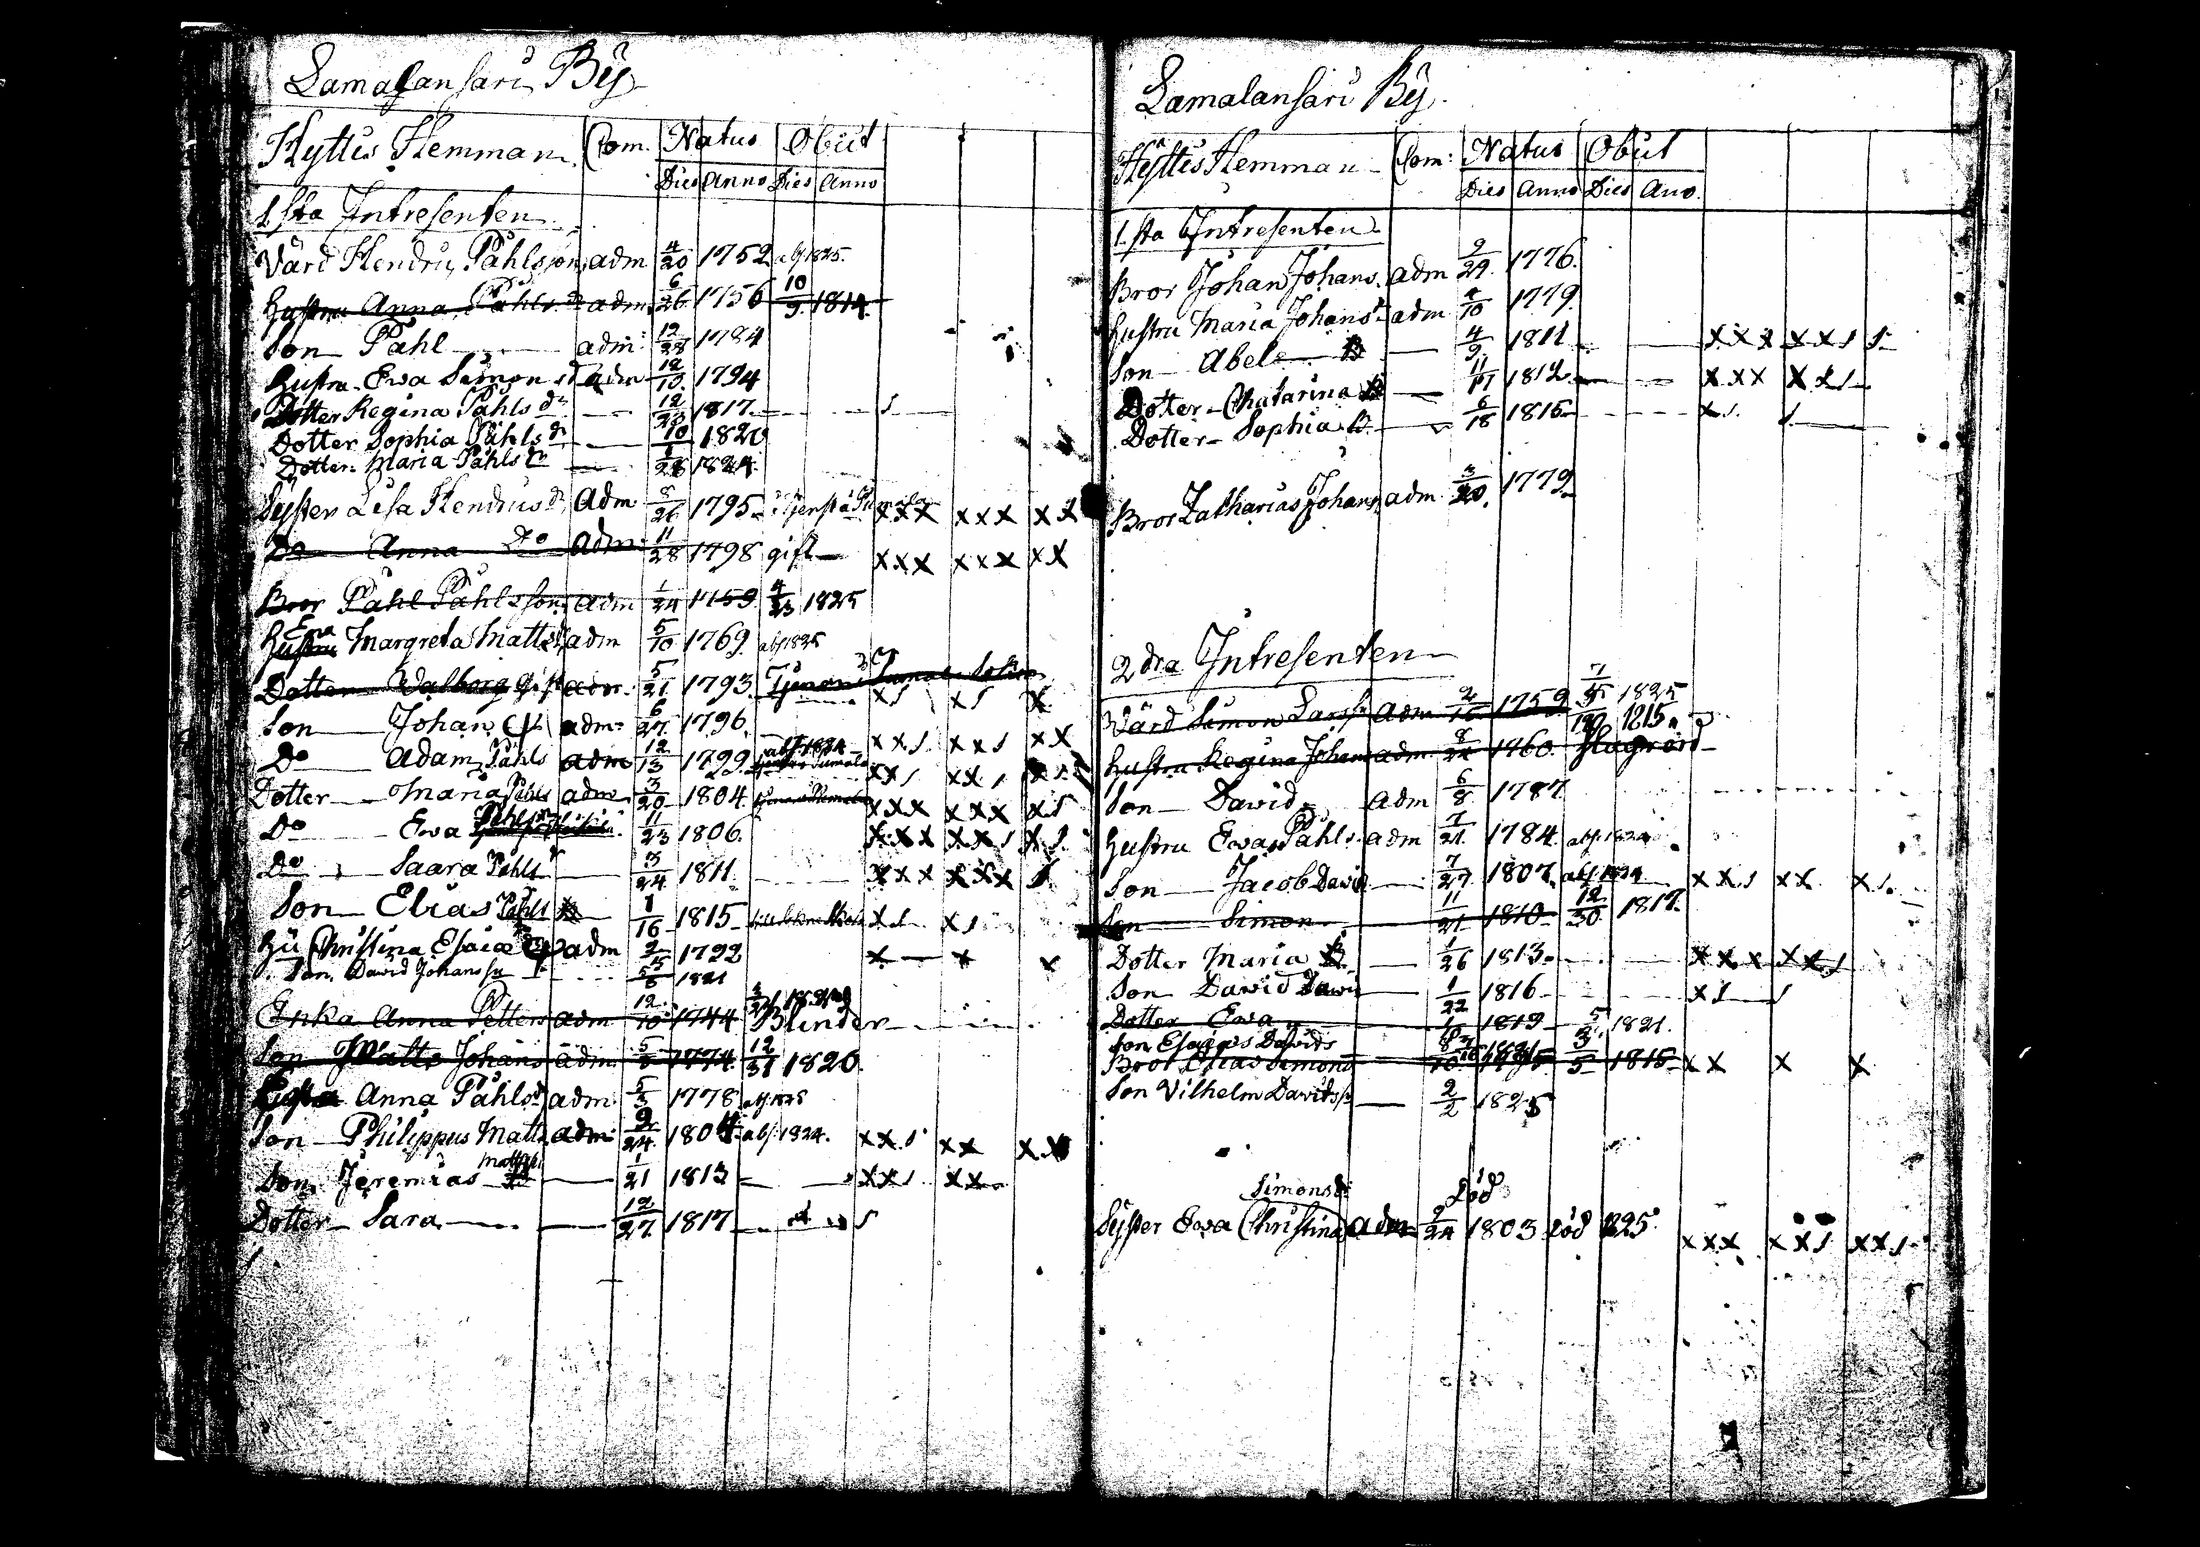 Lamalansari By
Hyttis Hemman Com. Natus Obiit
Dies Anno Dies Anno
1 sta Intresenten
Värd Hendric Påhlsson adm 4/20 1752 abs 1825.
Hustru Anna Påhls dr adm 6/26 1756 10/9 1814
Son Påhl adm 12/28 1784
Hustru Ewa Simons dr adm 12/13 1794
Dotter Regina Påhls dr 12/23 1817
Dotter Sophia Påhls dr 10 1820
Dotter Maria Påhls dr 1/28 1824
Syster Lisa Hendrics dr adm 8/26 1795 xxx xxx xx
Do Anna Do adm 11/28 1798 gift xxx xxx xx
Bror Påhl Påhlsson adm 1/24 1759 4/23 1825
Enka
Hustru Margreta Matts dr adm 5/10 1769 abs 1825
Dotter Walborg Gift adm 5/21 1793 Tjenar i Sumas Sokn
Son Johan adm 6/27 1796
Do Adam Påhls adm 12/13 1799 abs 1824
Dotter Maria Påhls adm 3/20 1804
Do Ewa Påhls 11/23 1806 xxx xx1 x1
Do Saara Påhls 3/24 1811 xxx xxx 1
Son Elias Påhls 1/16 1815 x1 x1
Hu Christina Esaiæ dr adm 2/15 1792 x x x
Son David Johanss 5/6 1821
Enka Anna Petters adm 12/10 1744 Blinder
Son Matts Johans adm 5/8 1774 12/31 1820
Anna Påhls dr adm 5/3 1778 abs 1825
Son Philippus Matts adm 9/24 1804 abs 1824. xx1 xx xx
Son Jeremias Matts 1/21 1813 xx1 xx
Dotter Sara 12/27 1817
Lamalansari By.
Hyttis Hemman Com: Natus Obiit
Dies Anno Dies Ano.
1 sta Intresenten
Bror Johan Johans. adm 9/29 1776.
Hustru Maria Johans dr adm 4/10 1779.
Son Abel 4/9 1811 xxx xx1 1
Dotter Chatarina 11/17 1812 xxx xx1
Dotter Sophia 6/18 1815 x1 1
Bror Zacharias Johans. adm 3/20 1779
2 dra Intresenten
Värd Simon Larss adm 2/15 1759 7/5 1825
Hustru Regina Johans adm 8/24 1760 1815
Son David adm 6/8 1787
Hustru Ewa Påhls adm 7/21 1784. abs 1824
Son Jacob David 7/27 1807 abs 1824 xx1 xx x1
Son Simon 11/21 1810 12/30 1817.
Dotter Maria 1/26 1813 xxx xx1
Son David 1/22 1816 x1 1
Dotter Ewa 1819 5/3 1821.
Son Esaias Davids
Bror Elias Simons 5 1815 xx x x
Son Vilhelm Davidss 2/2 1825
Simons dr Löd
Syster Ewa Christina adm 9/24 1803 Löd 1825. xxx xx1 xx1